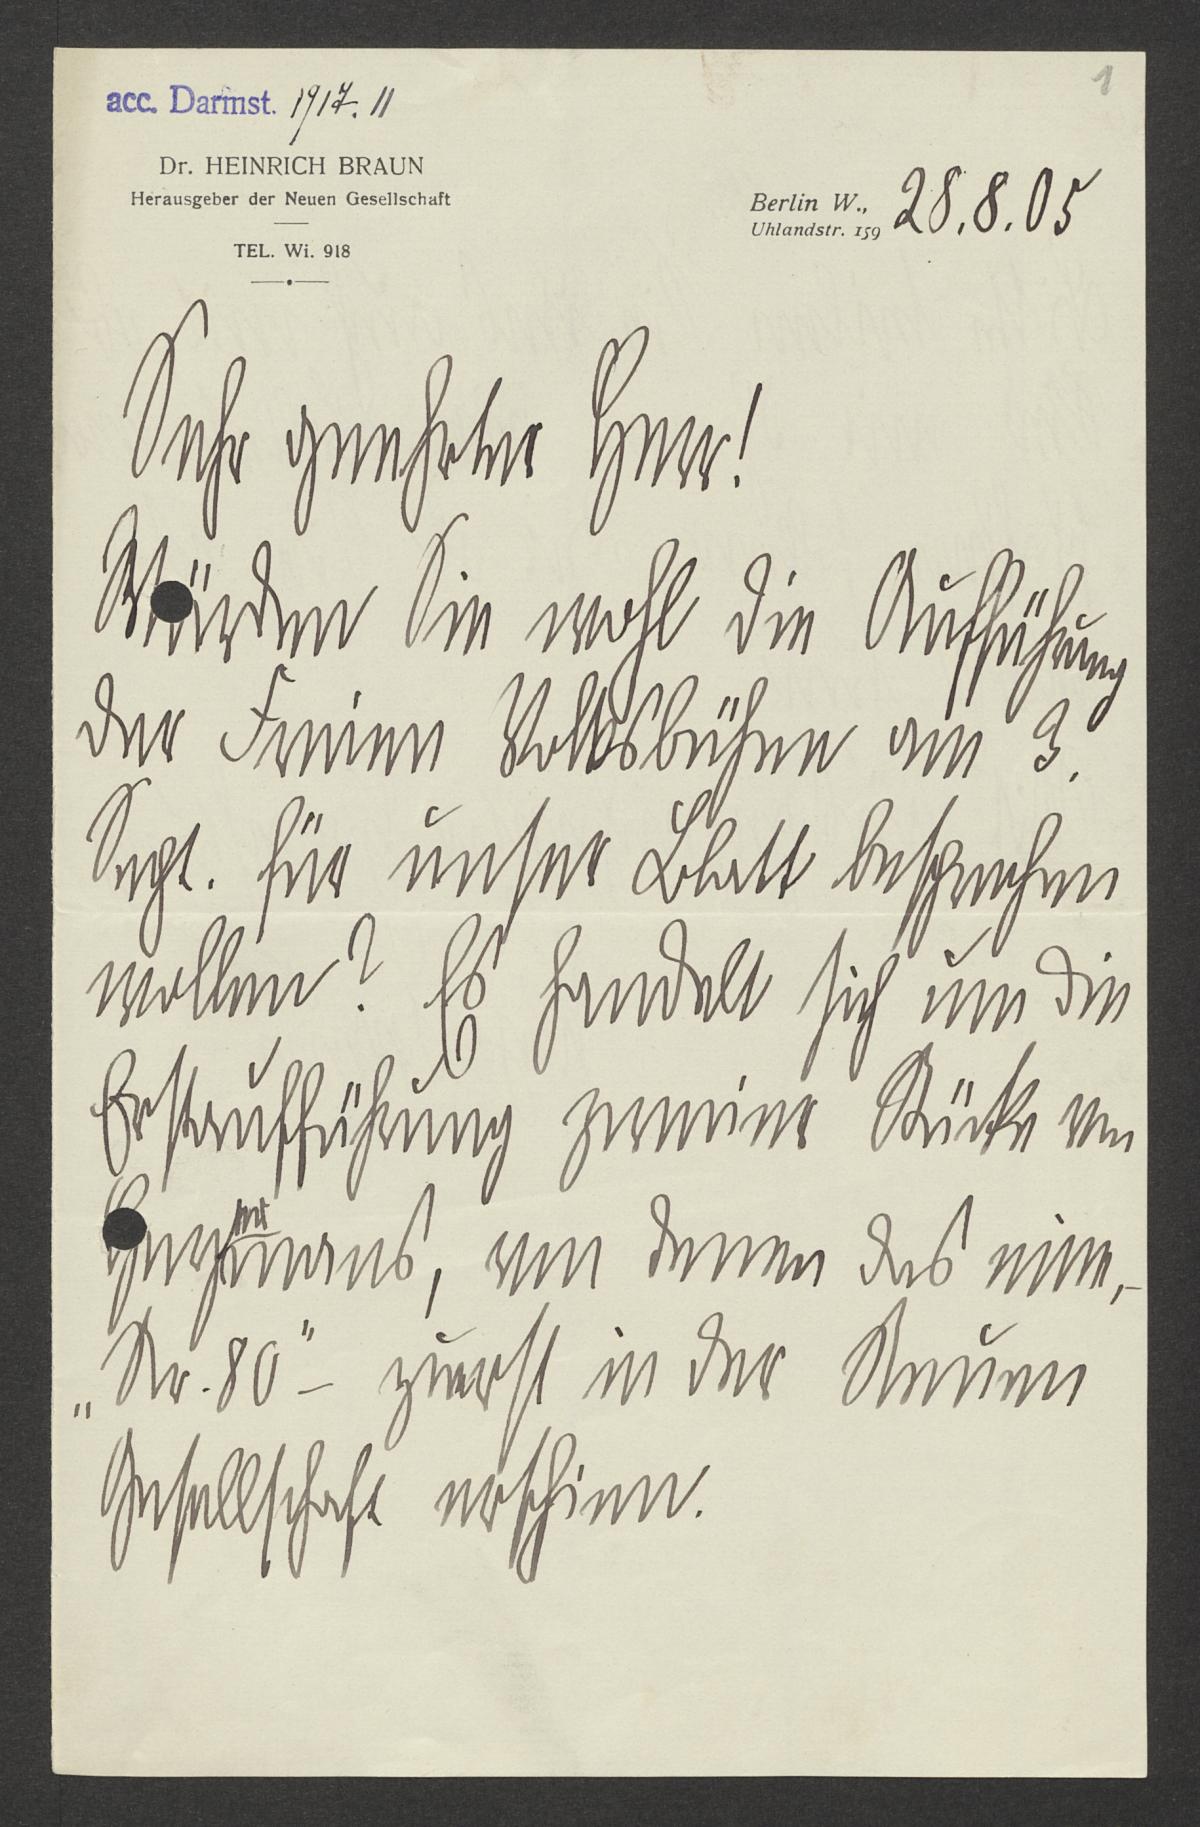 1
acc. Darmst. 1917. 11
Dr. HEINRICH BRAUN
Herausgeber der Neuen Gesellschaft
TEL. Wi. 918
Berlin W.,
Uhlandstr. 159
28.8.05
Sehr geehrter Herr!
Würden Sie wohl die Aufführung
der Freien Volksbühne am 3.
Sept. für unser Blatt besprechen
wollen? Es handelt sich um die
Erstaufführung zweier Stücke von
, von denen das eine, –
„Nr. 80“ – zuerst in der Neuen
Gesellschaft erschien.